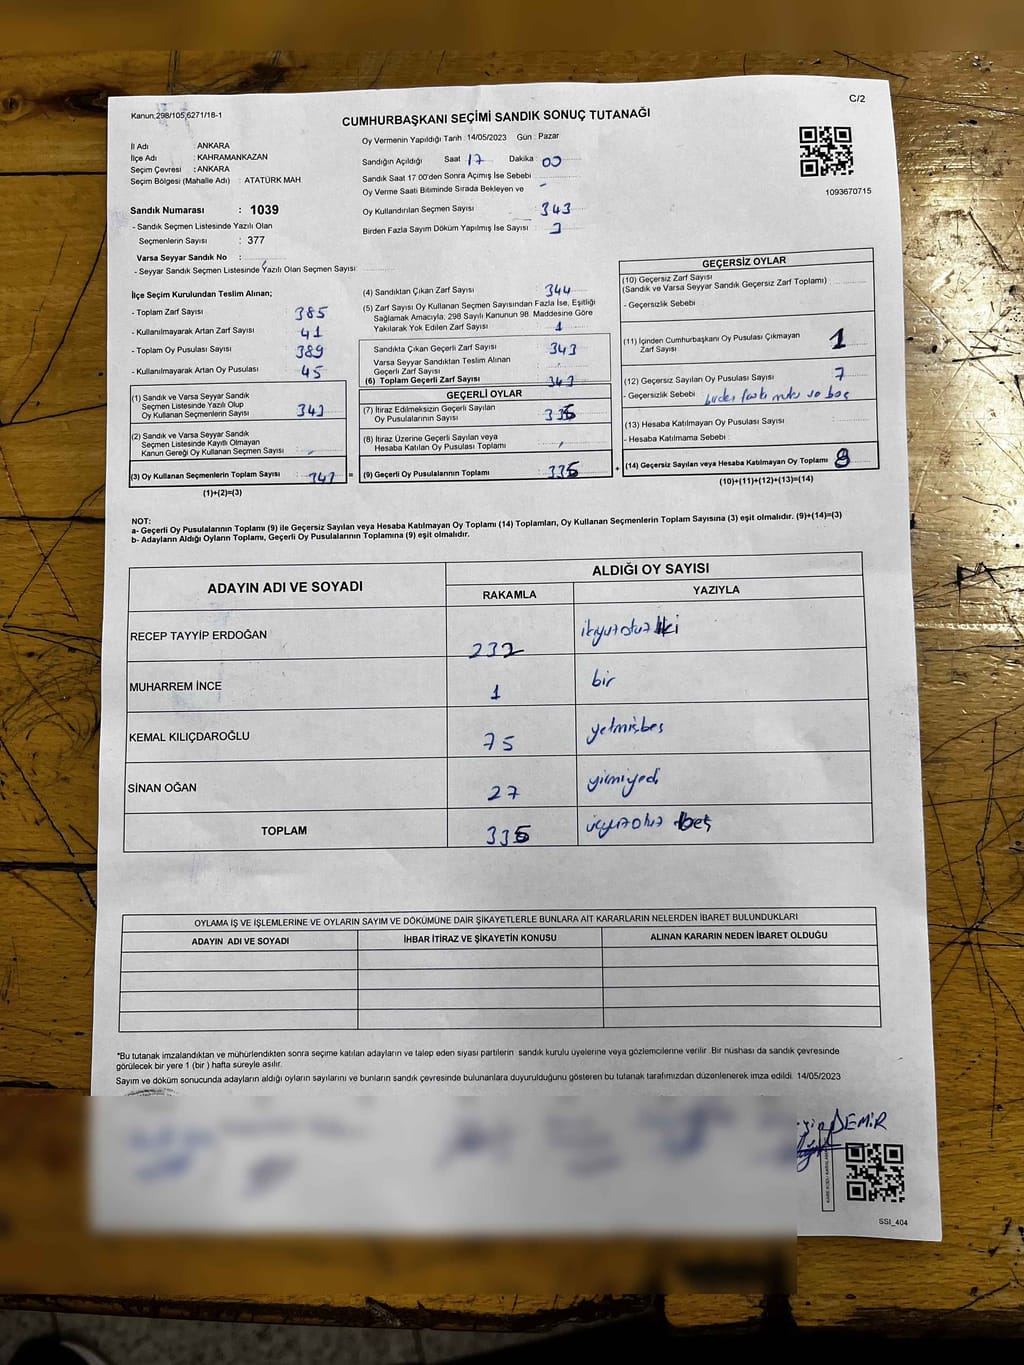 Kanun;298/105,6271/18-1
C/2
CUMHURBAŞKANI SEÇİMİ SANDIK SONUÇ TUTANAĞI
Oy Vermenin Yapıldığı Tarih : 14/05/2023 Gün : Pazar
İl Adı : ANKARA
İlçe Adı : KAHRAMANKAZAN
Seçim Çevresi : ANKARA
Seçim Bölgesi (Mahalle Adı) : ATATÜRK MAH
Sandığın Açıldığı Saat 17 Dakika : 00
Sandık Saat 17.00'den Sonra Açımış İse Sebebi
Oy Verme Saati Bitiminde Sırada Bekleyen ve
Oy Kullandırılan Seçmen Sayısı : 343
Birden Fazla Sayım Döküm Yapılmış İse Sayısı :
1093670715
Sandık Numarası : 1039
- Sandık Seçmen Listesinde Yazılı Olan
Seçmenlerin Sayısı : 377
Varsa Seyyar Sandık No :
- Seyyar Sandık Seçmen Listesinde Yazılı Olan Seçmen Sayısı:
İlçe Seçim Kurulundan Teslim Alınan;
- Toplam Zarf Sayısı 385
- Kullanılmayarak Artan Zarf Sayısı 41
- Toplam Oy Pusulası Sayısı 389
- Kullanılmayarak Artan Oy Pusulası 45
(1) Sandık ve Varsa Seyyar Sandık
Seçmen Listesinde Yazılı Olup
Oy Kullanan Seçmenlerin Sayısı : 343
(2) Sandık ve Varsa Seyyar Sandık
Seçmen Listesinde Kayıtlı Olmayan
Kanun Gereği Oy Kullanan Seçmen Sayısı :
(3) Oy Kullanan Seçmenlerin Toplam Sayısı : 343 =
(1)+(2)=(3)
(4) Sandıktan Çıkan Zarf Sayısı : 344
(5) Zarf Sayısı Oy Kullanan Seçmen Sayısından Fazla İse, Eşitliği
Sağlamak Amacıyla; 298 Sayılı Kanunun 98. Maddesine Göre
Yakılarak Yok Edilen Zarf Sayısı : 1
Sandıkta Çıkan Geçerli Zarf Sayısı : 343
Varsa Seyyar Sandıktan Teslim Alınan
Geçerli Zarf Sayısı :
(6) Toplam Geçerli Zarf Sayısı : 343
GEÇERLİ OYLAR
(7) İtiraz Edilmeksizin Geçerli Sayılan
Oy Pusulasının Sayısı : 335
(8) İtiraz Üzerine Geçerli Sayılan veya
Hesaba Katılan Oy Pusulası Toplamı :
(9) Geçerli Oy Pusulalarının Toplamı : 335 +
GEÇERSİZ OYLAR
(10) Geçersiz Zarf Sayısı
(Sandık ve Varsa Seyyar Sandık Geçersiz Zarf Toplamı) :
- Geçersizlik Sebebi :
(11) İçinden Cumhurbaşkanı Oy Pusulası Çıkmayan
Zarf Sayısı : 1
(12) Geçersiz Sayılan Oy Pusulası Sayısı : 7
- Geçersizlik Sebebi :
(13) Hesaba Katılmayan Oy Pusulası Sayısı :
- Hesaba Katılmama Sebebi :
(14) Geçersiz Sayılan veya Hesaba Katılmayan Oy Toplamı : 8
(10)+(11)+(12)+(13)=(14)
NOT:
a- Geçerli Oy Pusulalarının Toplamı (9) ile Geçersiz Sayılan veya Hesaba Katılmayan Oy Toplamı (14) Toplamları, Oy Kullanan Seçmenlerin Toplam Sayısına (3) eşit olmalıdır. (9)+(14)=(3)
b- Adayların Aldığı Oyların Toplamı, Geçerli Oy Pusulalarının Toplamına (9) eşit olmalıdır.
ADAYIN ADI VE SOYADI
ALDIĞI OY SAYISI
RAKAMLA
YAZIYLA
RECEP TAYYİP ERDOĞAN 232 ikiyüzotuziki
MUHARREM İNCE 1 bir
KEMAL KILIÇDAROĞLU 75 yetmişbeş
SİNAN OĞAN 27 yirmiyedi
TOPLAM 335 üçyüzotuz beş
OYLAMA İŞ VE İŞLEMLERİNE VE OYLARIN SAYIM VE DÖKÜMÜNE DAİR ŞİKAYETLERLE BUNLARA AİT KARARLARIN NELERDEN İBARET BULUNDUKLARI
ADAYIN ADI VE SOYADI
İHBAR İTİRAZ VE ŞİKAYETİN KONUSU
ALINAN KARARIN NEDEN İBARET OLDUĞU
*Bu tutanak imzalandıktan ve mühürlendikten sonra seçime katılan adayların ve talep eden siyasi partilerin sandık kurulu üyelerine veya gözlemcilerine verilir. Bir nüshası da sandık çevresinde
görülecek bir yere 1 (bir ) hafta süreyle asılır.
Sayım ve döküm sonucunda adayların aldığı oyların sayılarını ve bunların sandık çevresinde bulunanlara duyurulduğunu gösteren bu tutanak tarafımızdan düzenlenerek imza edildi. 14/05/2023
DEMİR
SSI_404